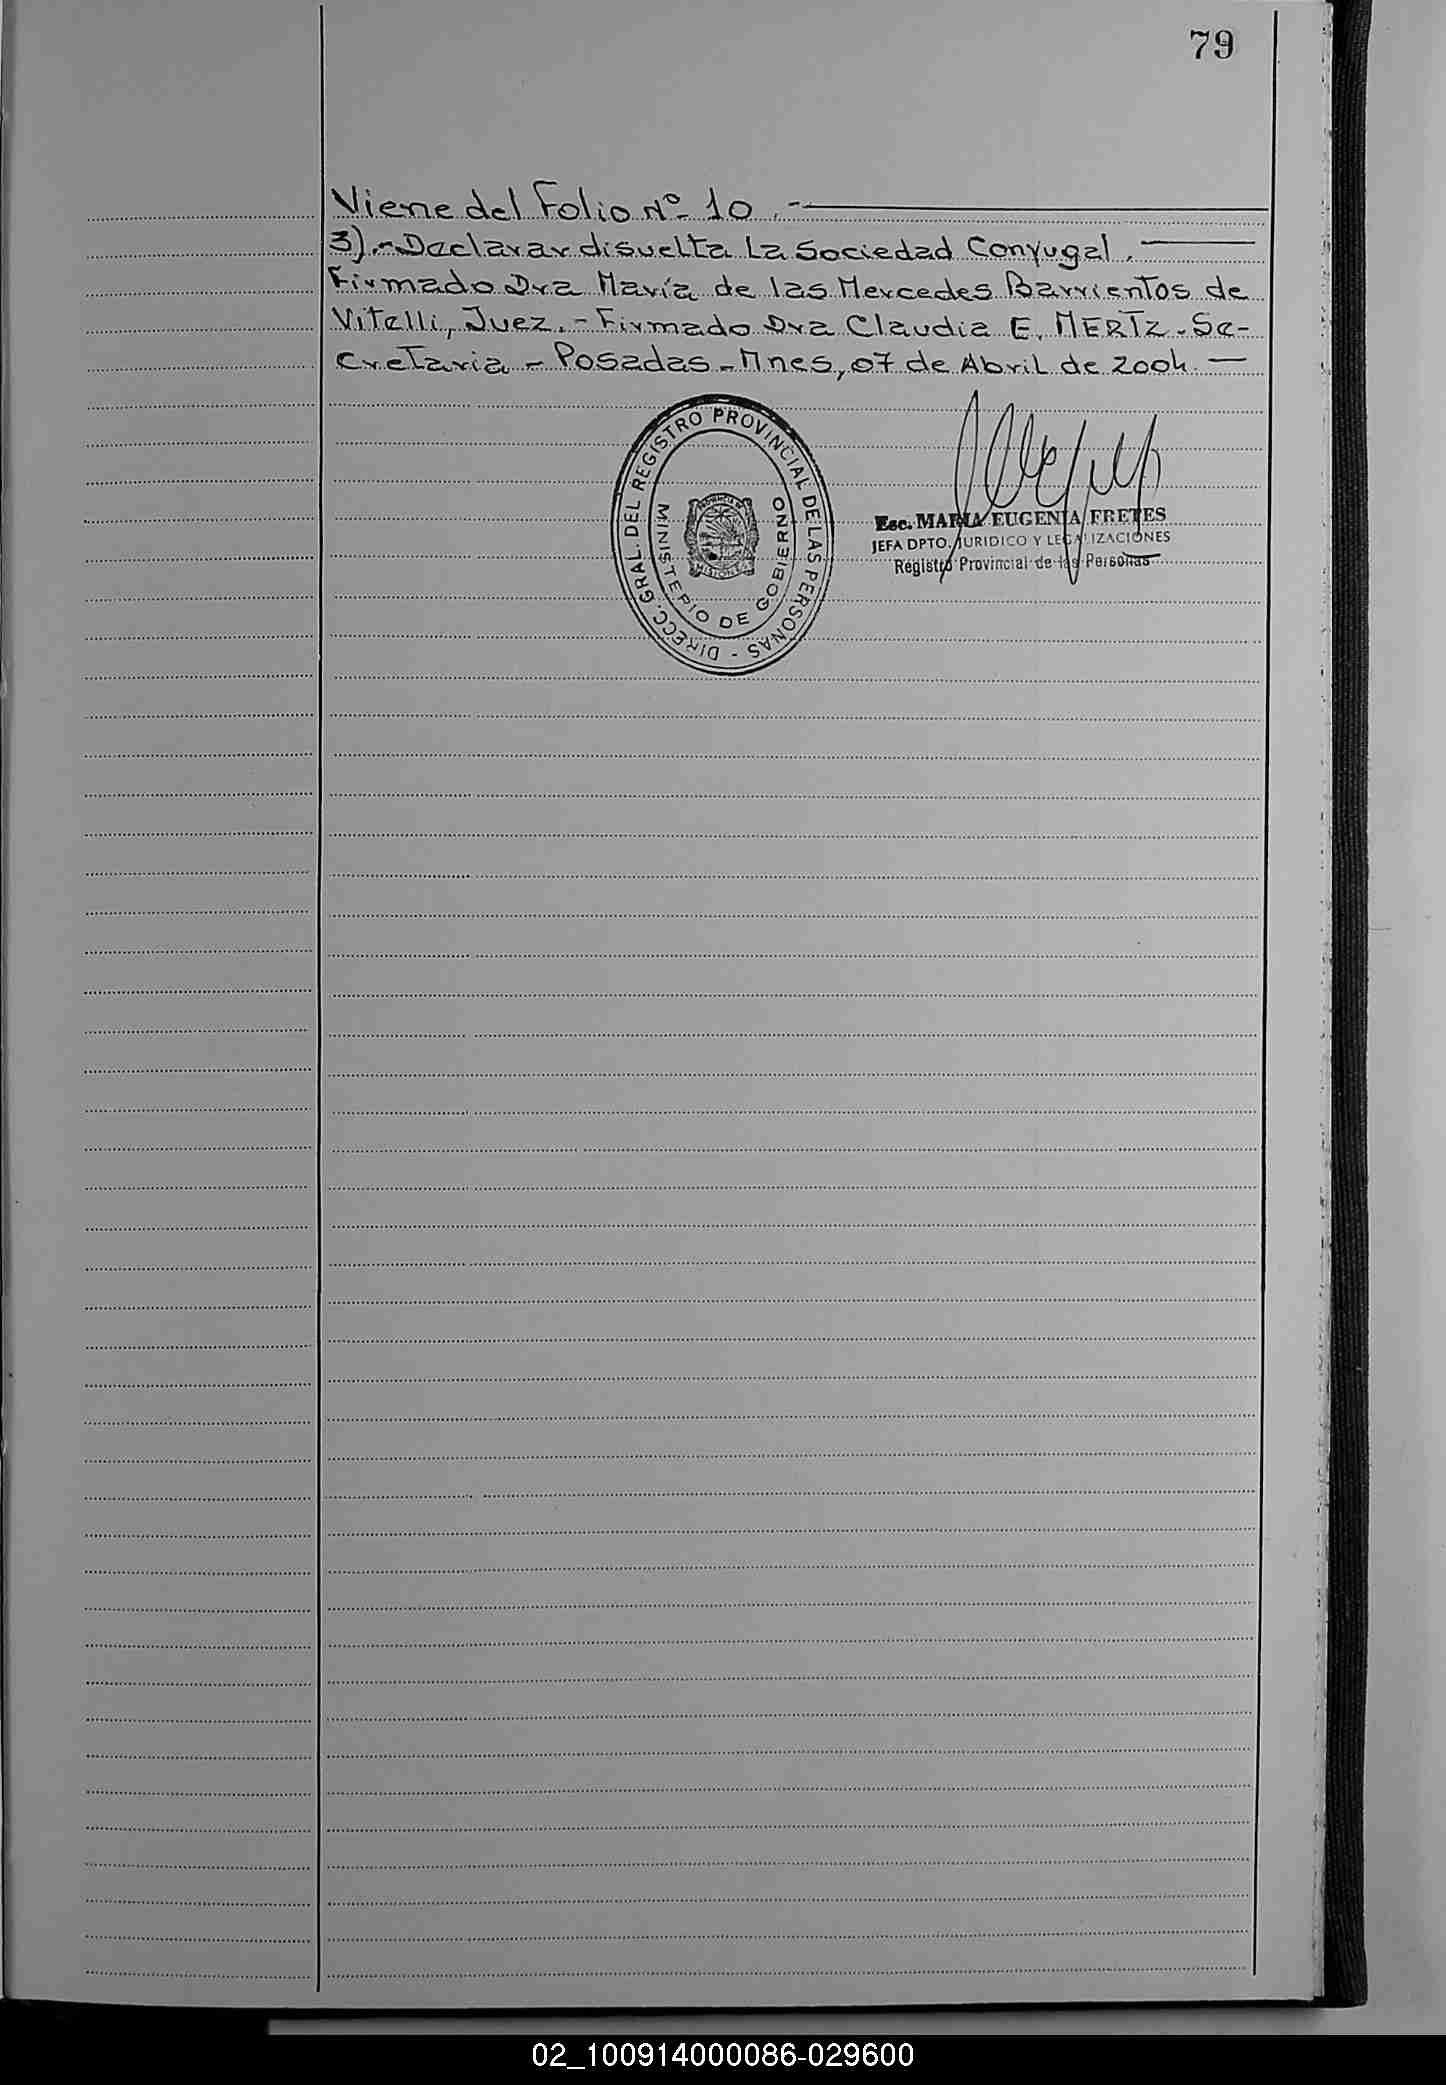 79
Viene del Folio Nº 10.-
3).- Declarar disuelta La Sociedad Conyugal.
Firmado Dra María de las Mercedes Barrientos de
Vitelli, Juez.- Firmado Dra Claudia E. MERTZ - Se-
cretaria - Posadas - Mnes, 07 de Abril de 2004.
DIRECC. GRAL. DEL REGISTRO PROVINCIAL DE LAS PERSONAS -
MINISTERIO DE GOBIERNO
PROVINCIA DE
MISIONES
Esc. MARIA EUGENIA FRETES
JEFA DPTO. JURIDICO Y LEGALIZACIONES
Registro Provincial de las Personas
02_100914000086-029600